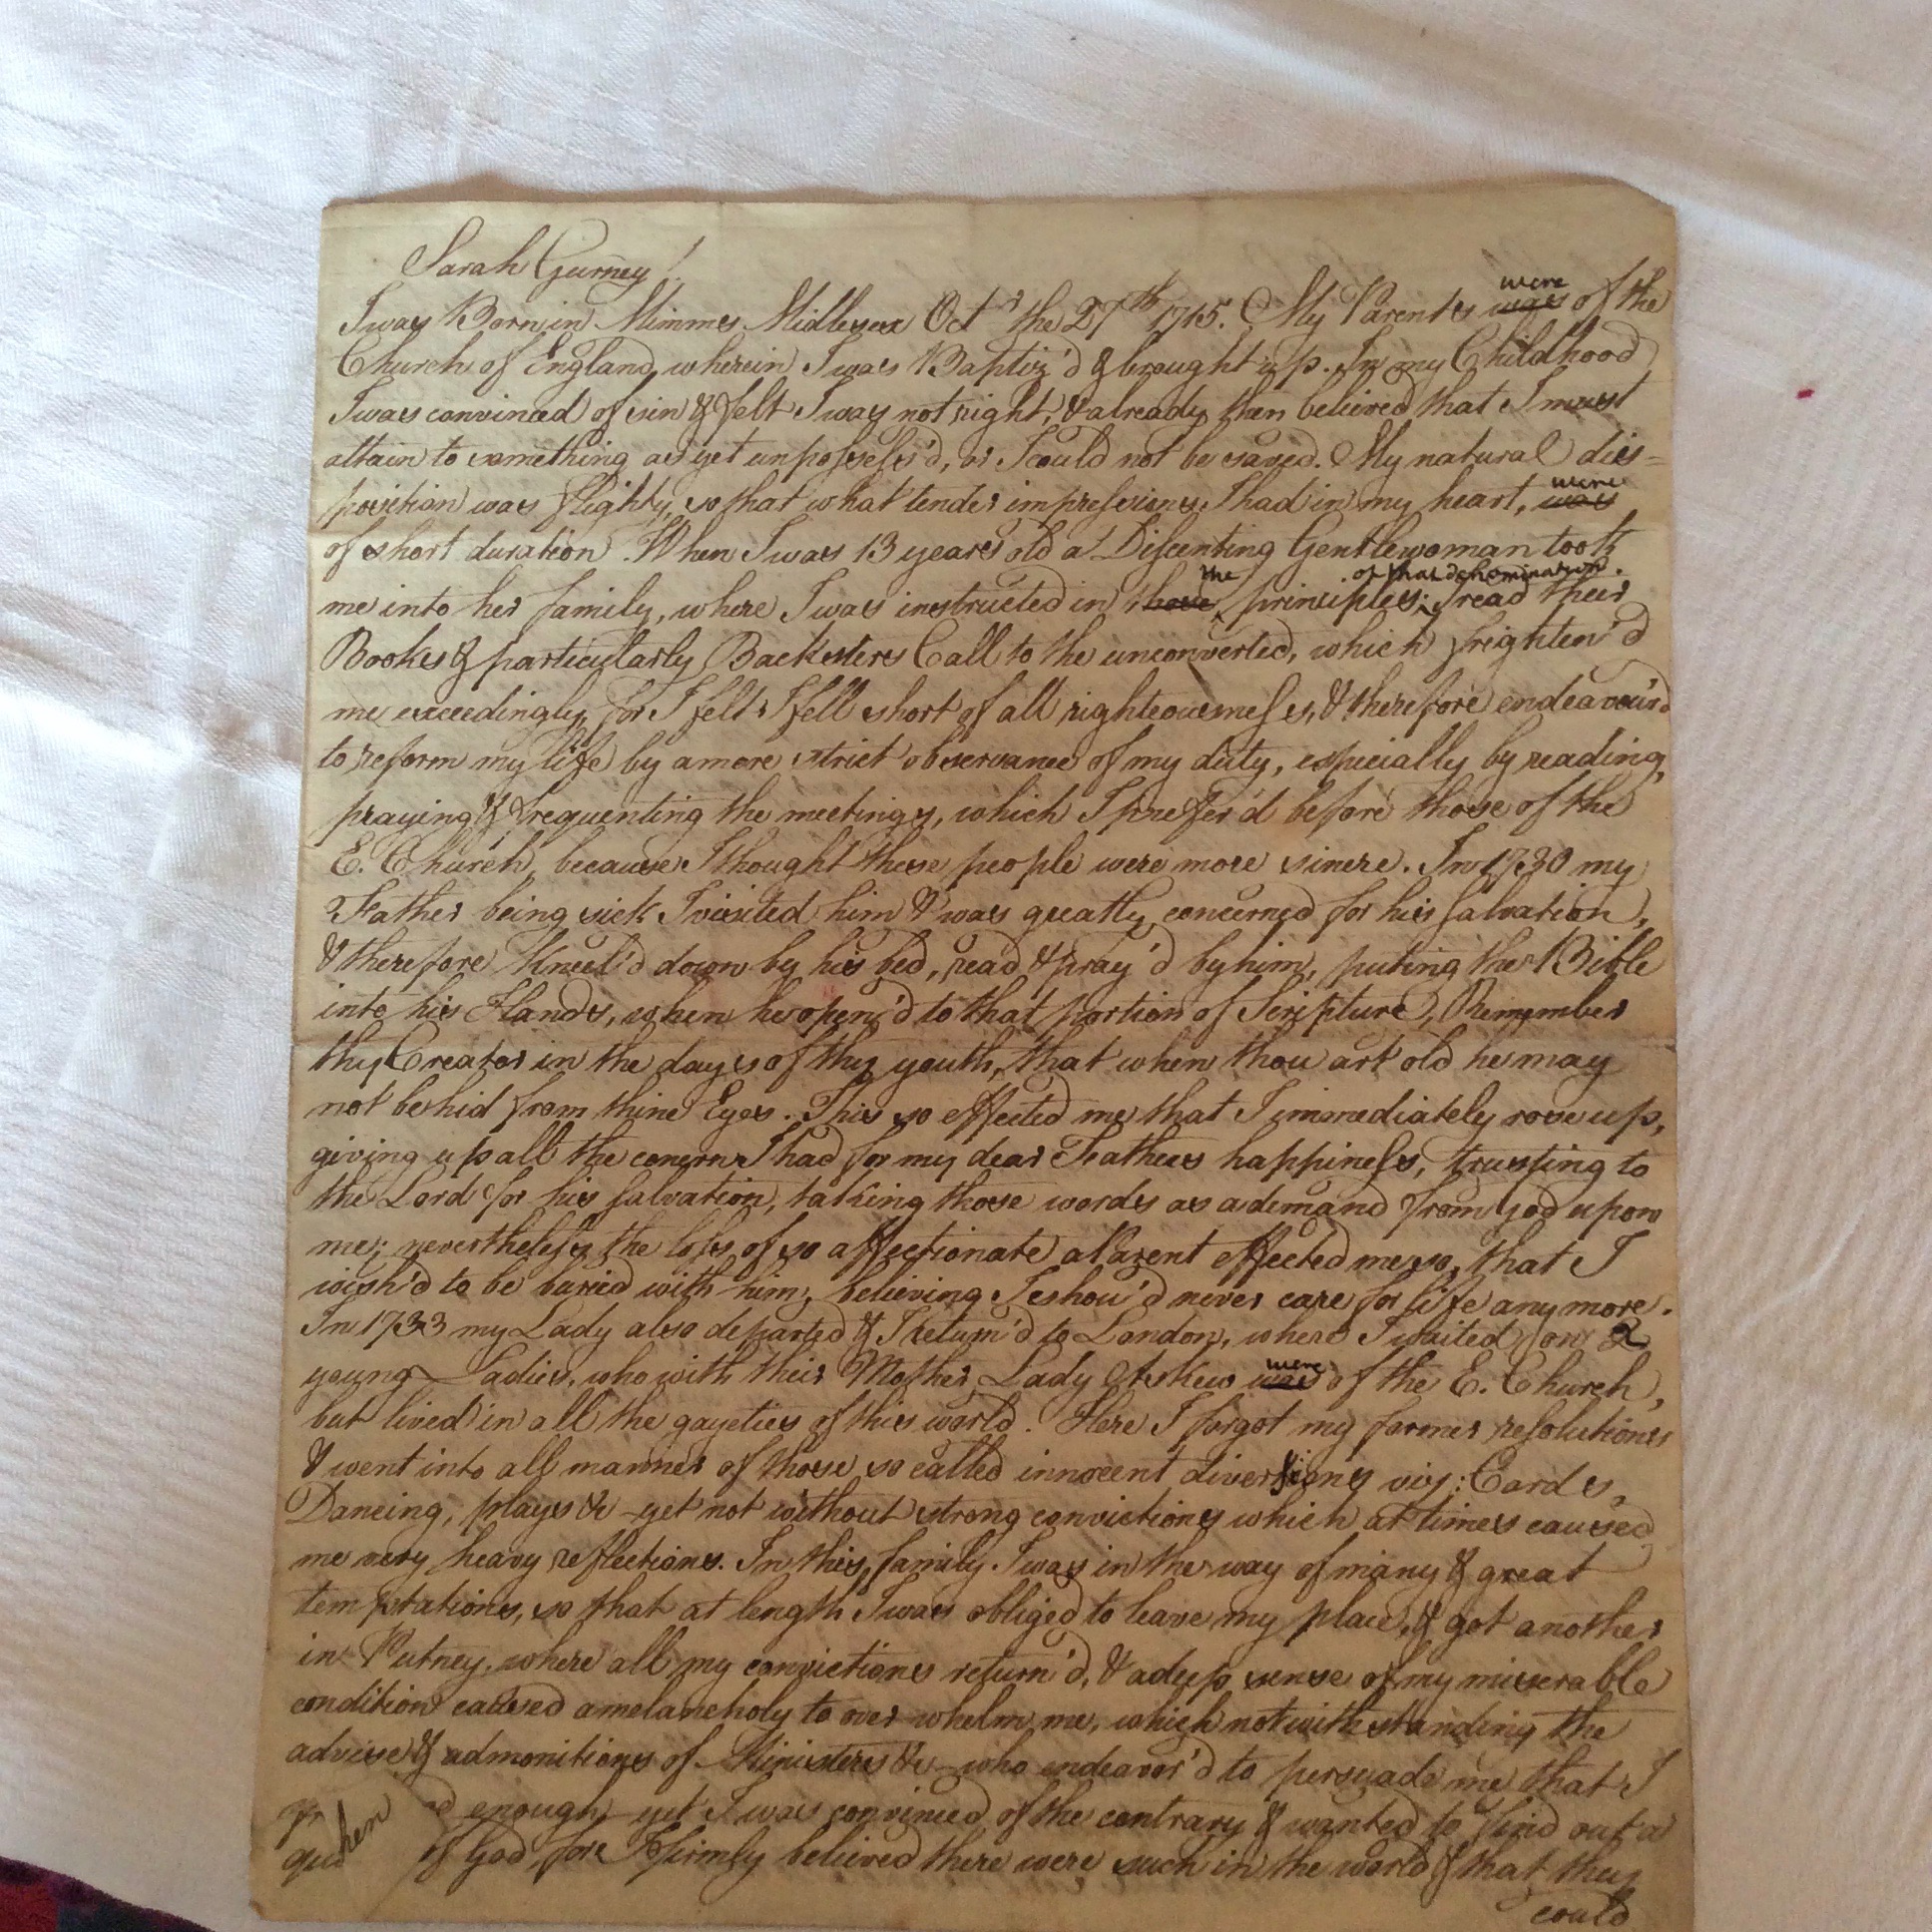 Sarah Gurney
I was Born in Mimms Midlesex Octr the 27th 1715. My Parents were of the
Church of England, wherein I was Baptiz'd & brought up. In my Childhood
I was convinced of sin & felt I was not right, & already then believed that I must
attain to something as yet unpossess'd, or I could not be saved. My natural dis=
position was flighty, so that what tender impressions I had in my heart, were was
of short duration. When I was 13 years old a Discenting Gentlewoman took
me into her family, where I was instructed in the principles of that denomination. I read their
Books & particularly Backsters Call to the unconverted, which frighten'd
me exceedingly, for I felt I fell short of all righteousness, & therefore endeavour'd
to reform my life by a more strict observance of my duty, especially by reading,
praying & frequenting the meetings, which I prefer'd before those of the
E. Church, because I thought these people were more sinere. In 1730 my
Father being sick I visited him & was greatly concerned for his salvation,
& therefore Kneel'd down by his bed, read & pray'd by him, puting the Bible
into his Hands, when he open'd to that portion of Scripture, Remember
thy Creator in the days of thy youth, that when thou art old he may
not be hid from thine Eyes. This so effected me that I immediately rose up,
giving up all the conern I had for my dear Fathers happiness, trusting to
the Lord for his salvation, taking those words as a demand from God upon
me; nevertheless the loss of so affectionate a Parent effected me so, that I
wish'd to be buried with him, believing I shou'd never care for life any more.
In 1733 my Lady also departed & I return'd to London, where I waited on 2
young Ladies, who with their Mother Lady Askew were of the E. Church,
but lived in all the gayeties of this world. Here I forgot my former resolutions
& went into all manner of those so called innocent diversions viz: Cards,
Dancing, plays &c - yet not without strong convictions which at times caused
me very heavy reflections. In this family I was in the way of many & great
temptations, so that at length I was obliged to leave my place, & got another
in Putney, where all my convictions return'd, & a deep sense of my misserable
condition caused a melancholy to over whelm me, which notwithstanding the
advise & admonitions of Ministers &c - who endeavor'd to persuade me that I
enough, yet I was convinced of the contrary & wanted to find out a
of God, for I firmly believed there were such in the world & that they
could